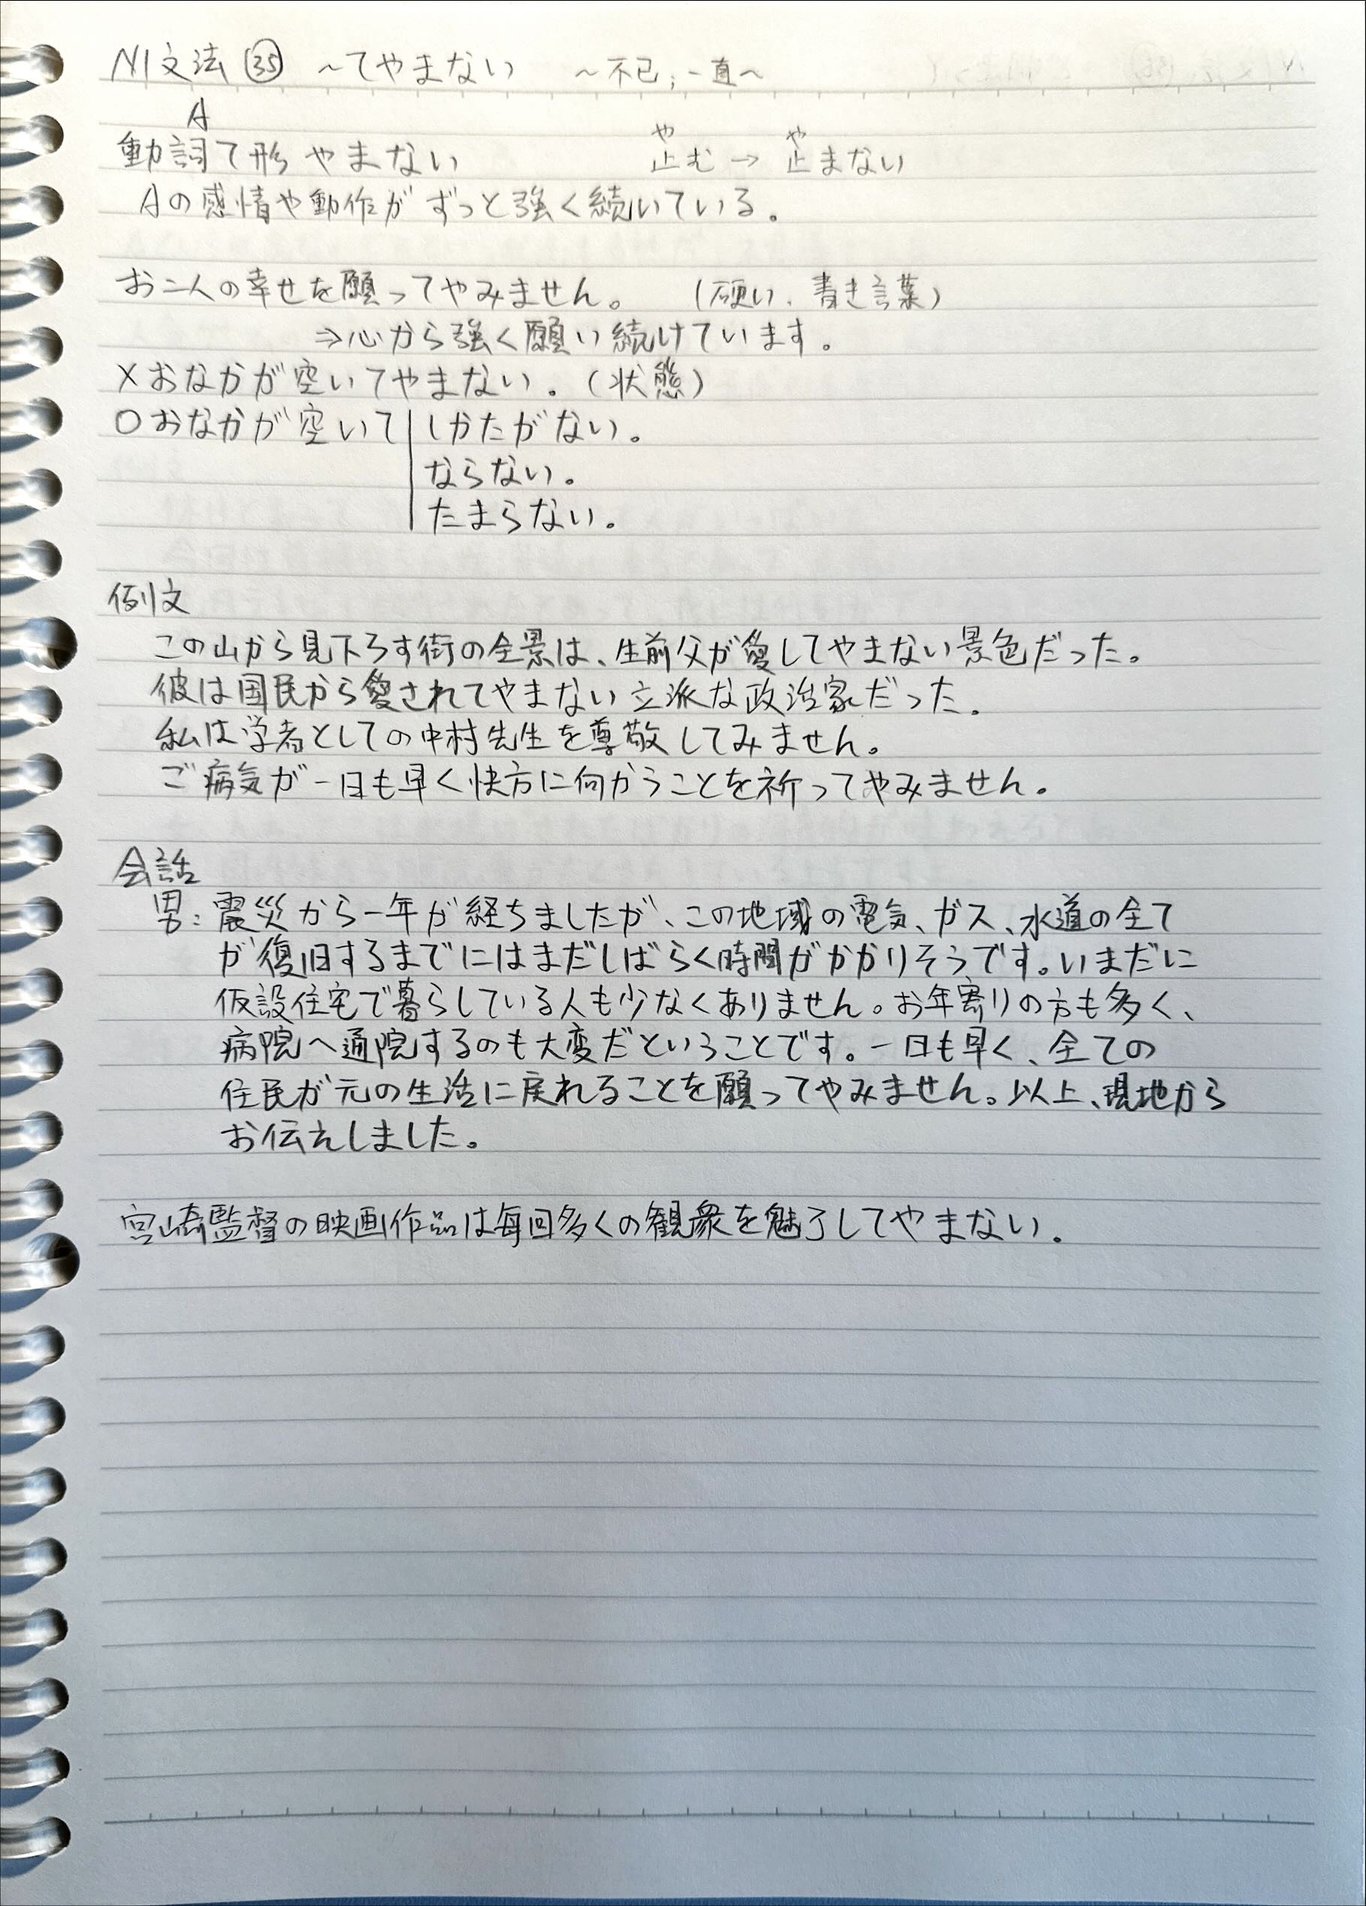 N1文法㉟ ～てやまない ～不已；一直～
A
動詞て形 やまない 止む→止まない
や や
Aの感情や動作がずっと強く続いている。
お二人の幸せを願ってやみません。 (硬い、書き言葉)
⇒心から強く願い続けています。
×おなかが空いてやまない。(状態)
○おなかが空いて しかたがない。
ならない。
たまらない。
例文
この山から見下ろす街の全景は、生前父が愛してやまない景色だった。
彼は国民から愛されてやまない立派な政治家だった。
私は学者としての中村先生を尊敬してみません。
ご病気が一日も早く快方に向かうことを祈ってやみません。
会話
男：震災から一年が経ちましたが、この地域の電気、ガス、水道の全て
が復旧するまでにはまだしばらく時間がかかりそうです。いまだに
仮設住宅で暮らしている人も少なくありません。お年寄りの方も多く、
病院へ通院するのも大変だということです。一日も早く、全ての
住民が元の生活に戻れることを願ってやみません。以上、現地から
お伝えしました。
宮崎監督の映画作品は毎回多くの観衆を魅了してやまない。